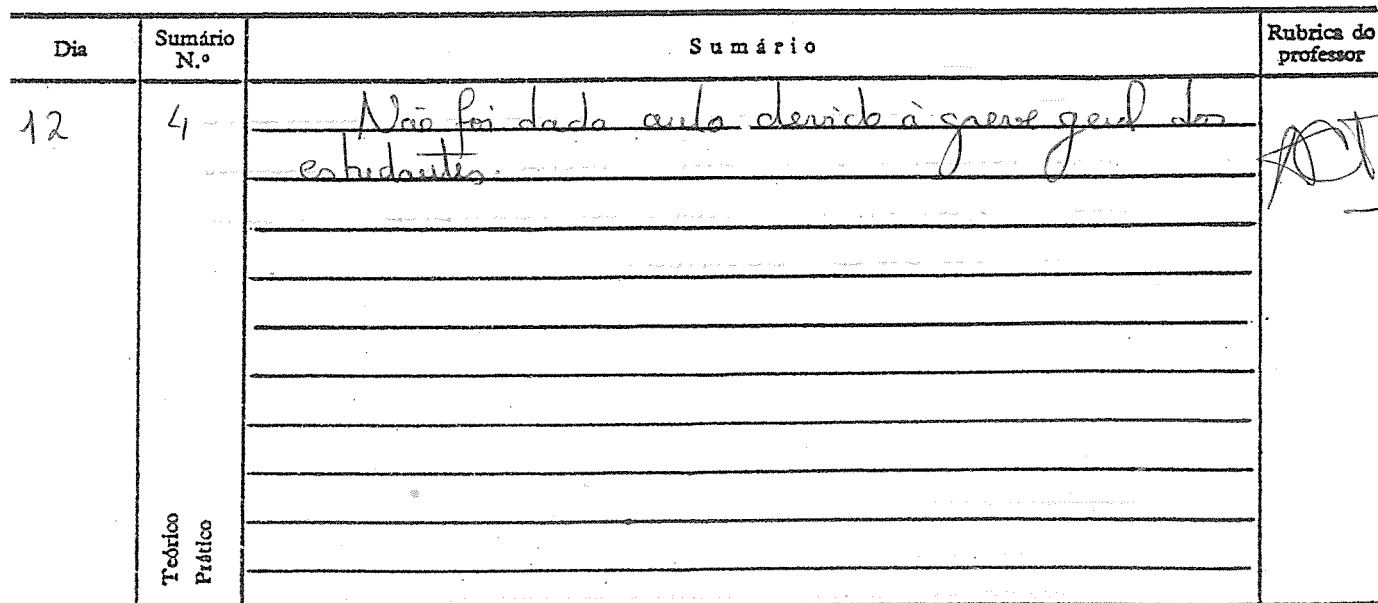 Dia
Sumário N.º
Sumário
Rubrica do professor
12
4
Não foi dada aula devido à greve geral dos
estudantes.
Teórico
Prático